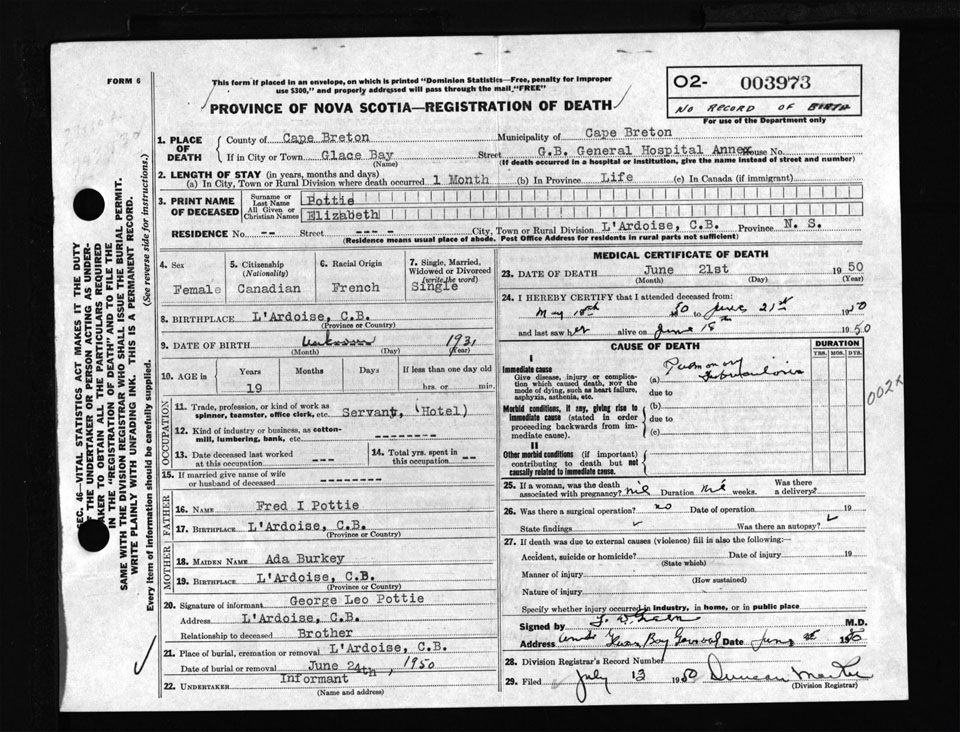 FORM 6
This form if placed in an envelope, on which is printed "Dominion Statistics—Free, penalty for improper
use $300," and properly addressed will pass through the mail "FREE"
PROVINCE OF NOVA SCOTIA—REGISTRATION OF DEATH
02- 003973
NO RECORD OF BIRTH
For use of the Department only
SEC. 46—VITAL STATISTICS ACT MAKES IT THE DUTY
OF THE UNDERTAKER OR PERSON ACTING AS UNDER-
TAKER TO OBTAIN ALL THE PARTICULARS REQUIRED
IN THE "REGISTRATION OF DEATH" AND TO FILE THE
SAME WITH THE DIVISION REGISTRAR WHO SHALL ISSUE THE BURIAL PERMIT.
WRITE PLAINLY WITH UNFADING INK. THIS IS A PERMANENT RECORD.
Every item of information should be carefully supplied. (See reverse side for instructions.)
1. PLACE OF DEATH
County of Cape Breton Municipality of Cape Breton
If in City or Town Glace Bay Street G.B. General Hospital Annex House No.
(Name) (If death occurred in a hospital or institution, give the name instead of street and number)
2. LENGTH OF STAY (in years, months and days)
(a) In City, Town or Rural Division where death occurred 1 Month (b) In Province Life (c) In Canada (if immigrant)
3. PRINT NAME OF DECEASED
Surname or Last Name Pottie
All Given or Christian Names Elizabeth
RESIDENCE No. -- Street ---- City, Town or Rural Division L'Ardoise, C.B. Province N. S.
(Residence means usual place of abode. Post Office Address for residents in rural parts not sufficient)
4. Sex Female
5. Citizenship (Nationality) Canadian
6. Racial Origin French
7. Single, Married, Widowed or Divorced (write the word) Single
8. BIRTHPLACE L'Ardoise, C.B.
(Province or Country)
9. DATE OF BIRTH Unknown 1931
(Month) (Day) (Year)
10. AGE in Years Months Days If less than one day old
19 hrs. or min.
OCCUPATION
11. Trade, profession, or kind of work as
spinner, teamster, office clerk, etc. Servant, (Hotel)
12. Kind of industry or business, as cotton-
mill, lumbering, bank, etc. --------
13. Date deceased last worked
at this occupation ---
14. Total yrs. spent in
this occupation --
15. If married give name of wife
or husband of deceased --------
FATHER
16. NAME Fred I Pottie
17. BIRTHPLACE L'Ardoise, C.B.
(Province or Country)
MOTHER
18. MAIDEN NAME Ada Burkey
19. BIRTHPLACE L'Ardoise, C.B.
(Province or Country)
20. Signature of informant George Leo Pottie
Address L'Ardoise, C.B.
Relationship to deceased Brother
21. Place of burial, cremation or removal L'Ardoise, C.B.
Date of burial or removal June 24th, 1950
22. UNDERTAKER Informant
(Name and address)
MEDICAL CERTIFICATE OF DEATH
23. DATE OF DEATH June 21st 1950
(Month) (Day) (Year)
24. I HEREBY CERTIFY that I attended deceased from:
May 18th 50 to June 21st 1950
and last saw her alive on June 18th 1950
CAUSE OF DEATH
DURATION
YRS. MOS. DYS.
I
Immediate cause
Give disease, injury or complica-
tion which caused death, NOT the
mode of dying, such as heart failure,
asphyxia, asthenia, etc.
(a) Pulmonary Tuberculosis
due to
Morbid conditions, if any, giving rise to
immediate cause (stated in order
proceeding backwards from im-
mediate cause).
(b)
due to
(c)
II
Other morbid conditions (if important)
contributing to death but not
causally related to immediate cause.
002x
25. If a woman, was the death
associated with pregnancy? nil Duration nil weeks. Was there
a delivery?
26. Was there a surgical operation? no Date of operation 19
State findings Was there an autopsy?
27. If death was due to external causes (violence) fill in also the following:—
Accident, suicide or homicide? Date of injury 19
(State which)
Manner of injury
(How sustained)
Nature of injury
Specify whether injury occurred in industry, in home, or in public place
Signed by M.D.
Address General Date June
28. Division Registrar's Record Number
29. Filed July 13 1950 Duncan
(Division Registrar)